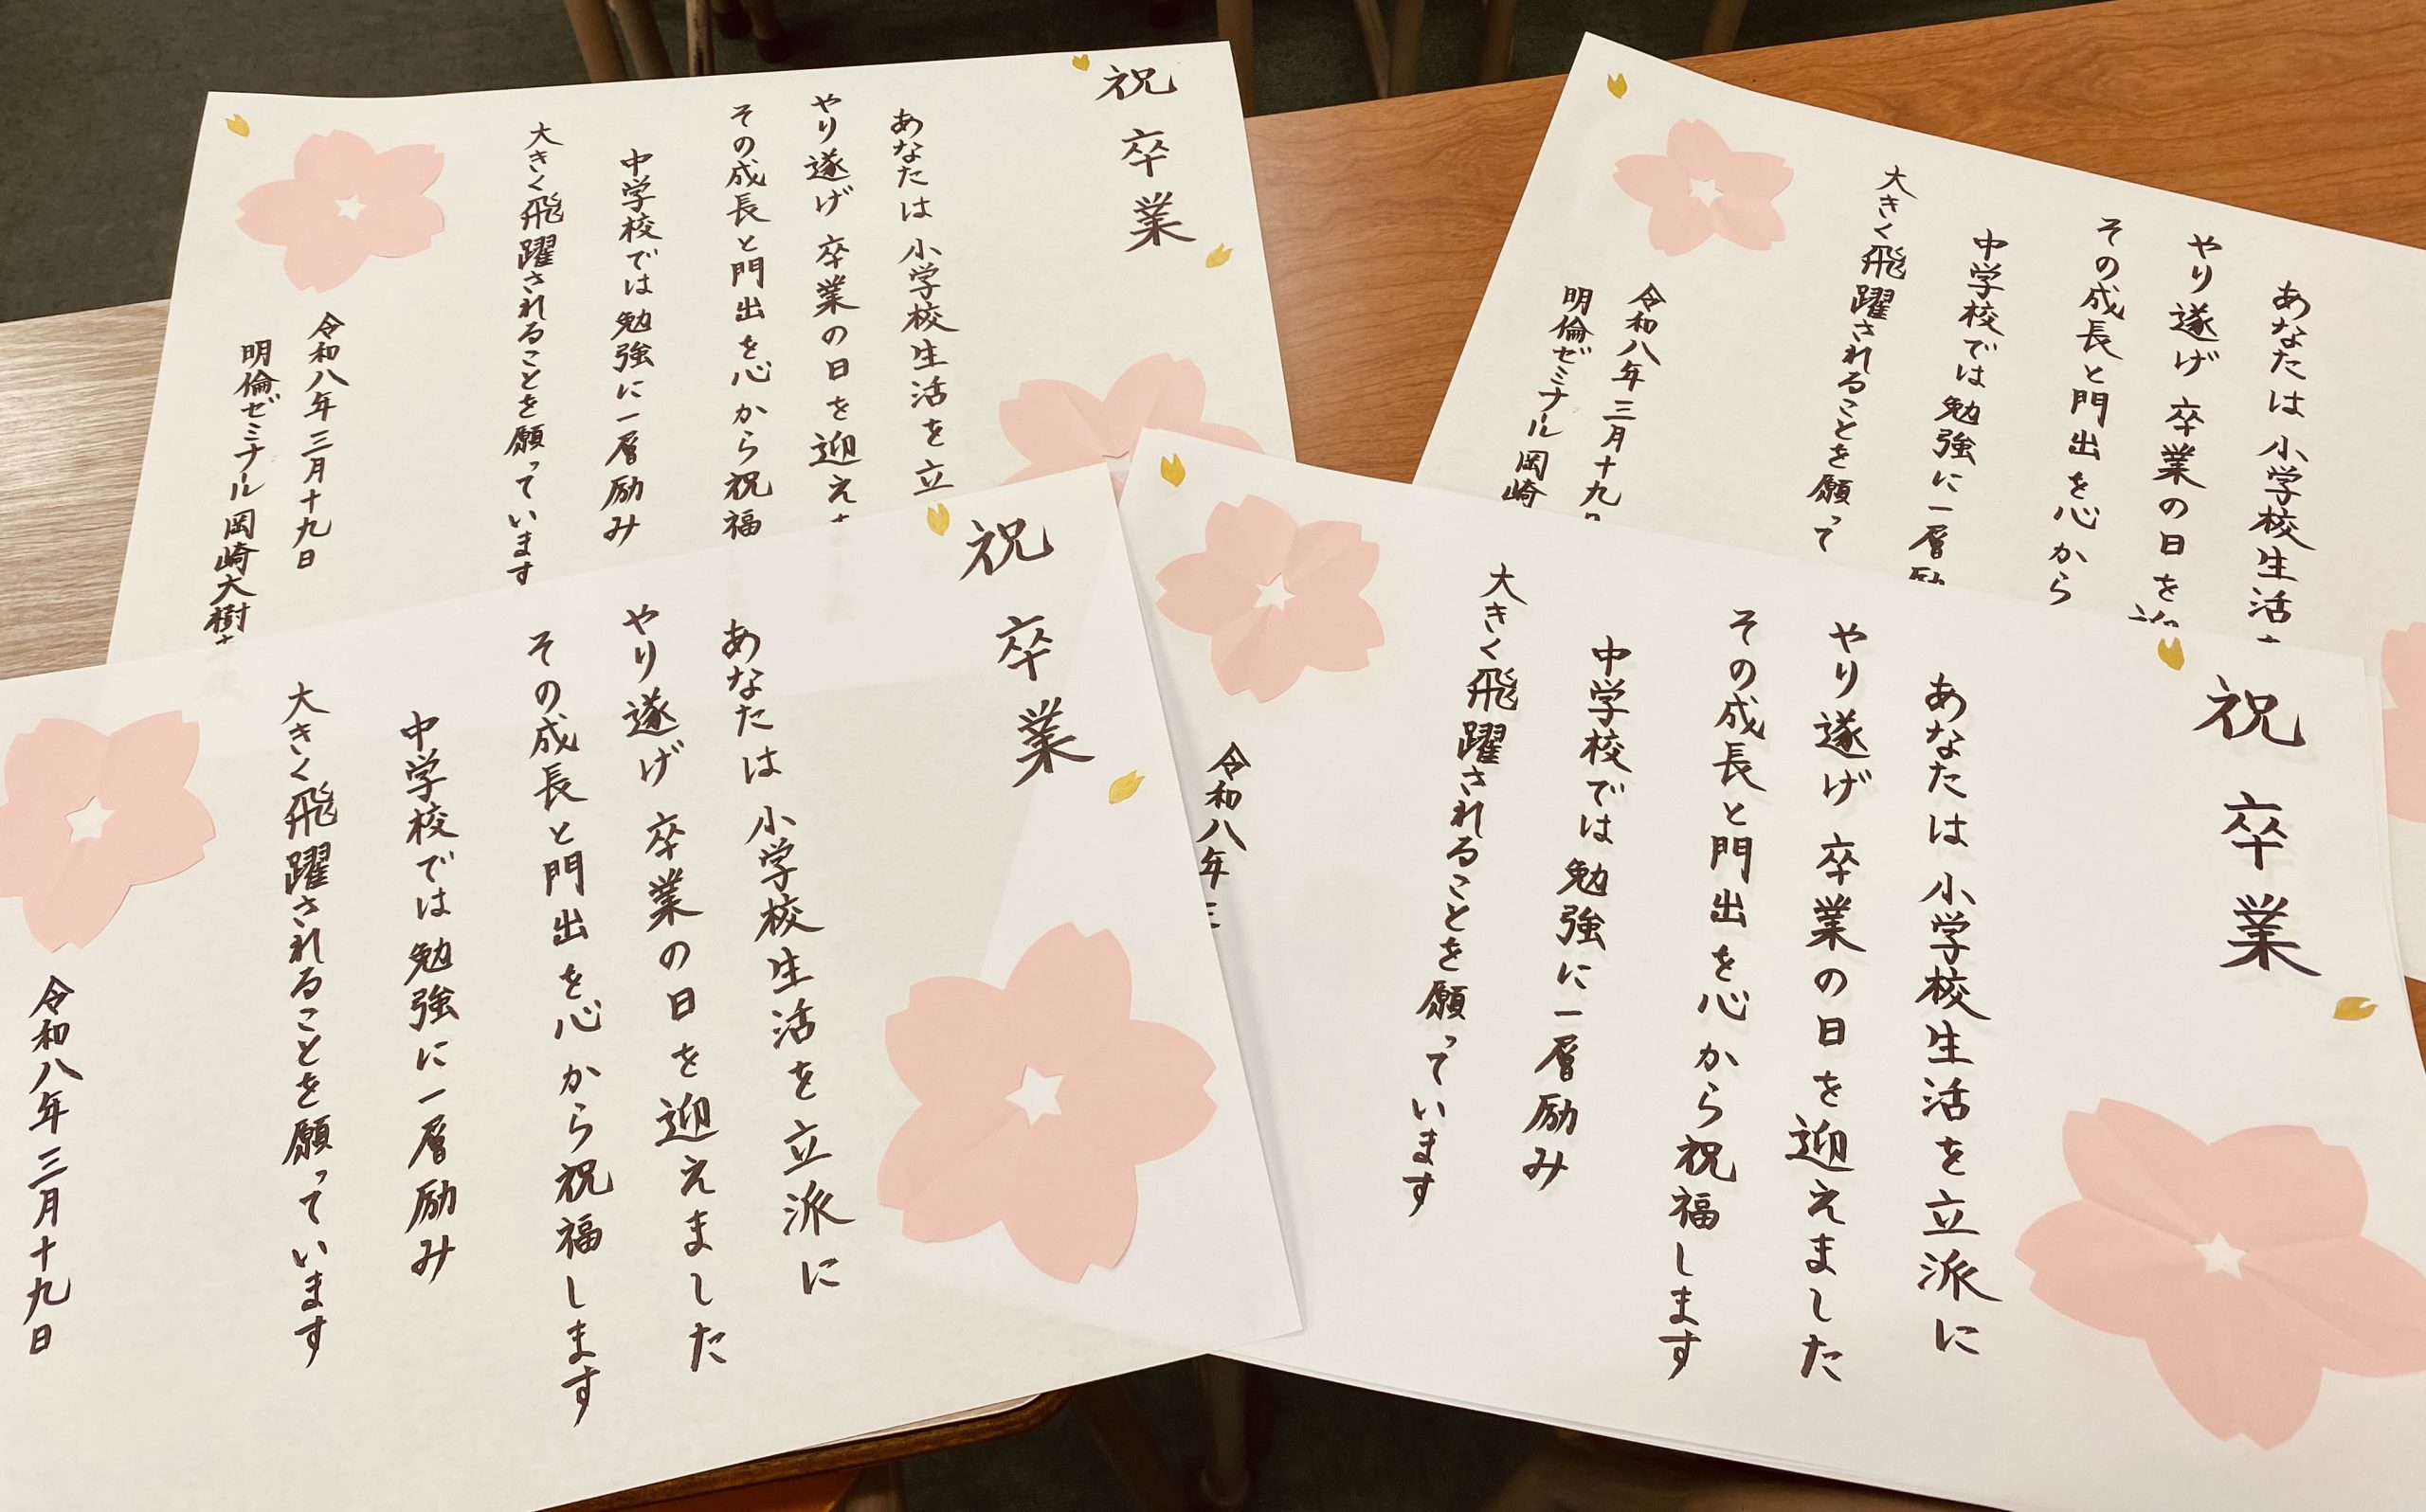 祝 卒業
あなたは小学校生活を立
やり遂げ卒業の日を迎え
その成長と門出を心から祝福
中学校では勉強に一層励み
大きく飛躍されることを願っています
令和八年三月十九日
明倫ゼミナール岡崎大樹
あなたは小学校生活
やり遂げ卒業の日を
その成長と門出を心から
中学校では勉強に一層
大きく飛躍されることを願って
令和八年三月十九
明倫ゼミナール岡崎
祝 卒業
あなたは小学校生活を立派に
やり遂げ卒業の日を迎えました
その成長と門出を心から祝福します
中学校では勉強に一層励み
大きく飛躍されることを願っています
令和八年三月十九日
祝 卒業
あなたは小学校生活を立派に
やり遂げ卒業の日を迎えました
その成長と門出を心から祝福します
中学校では勉強に一層励み
大きく飛躍されることを願っています
令和八年